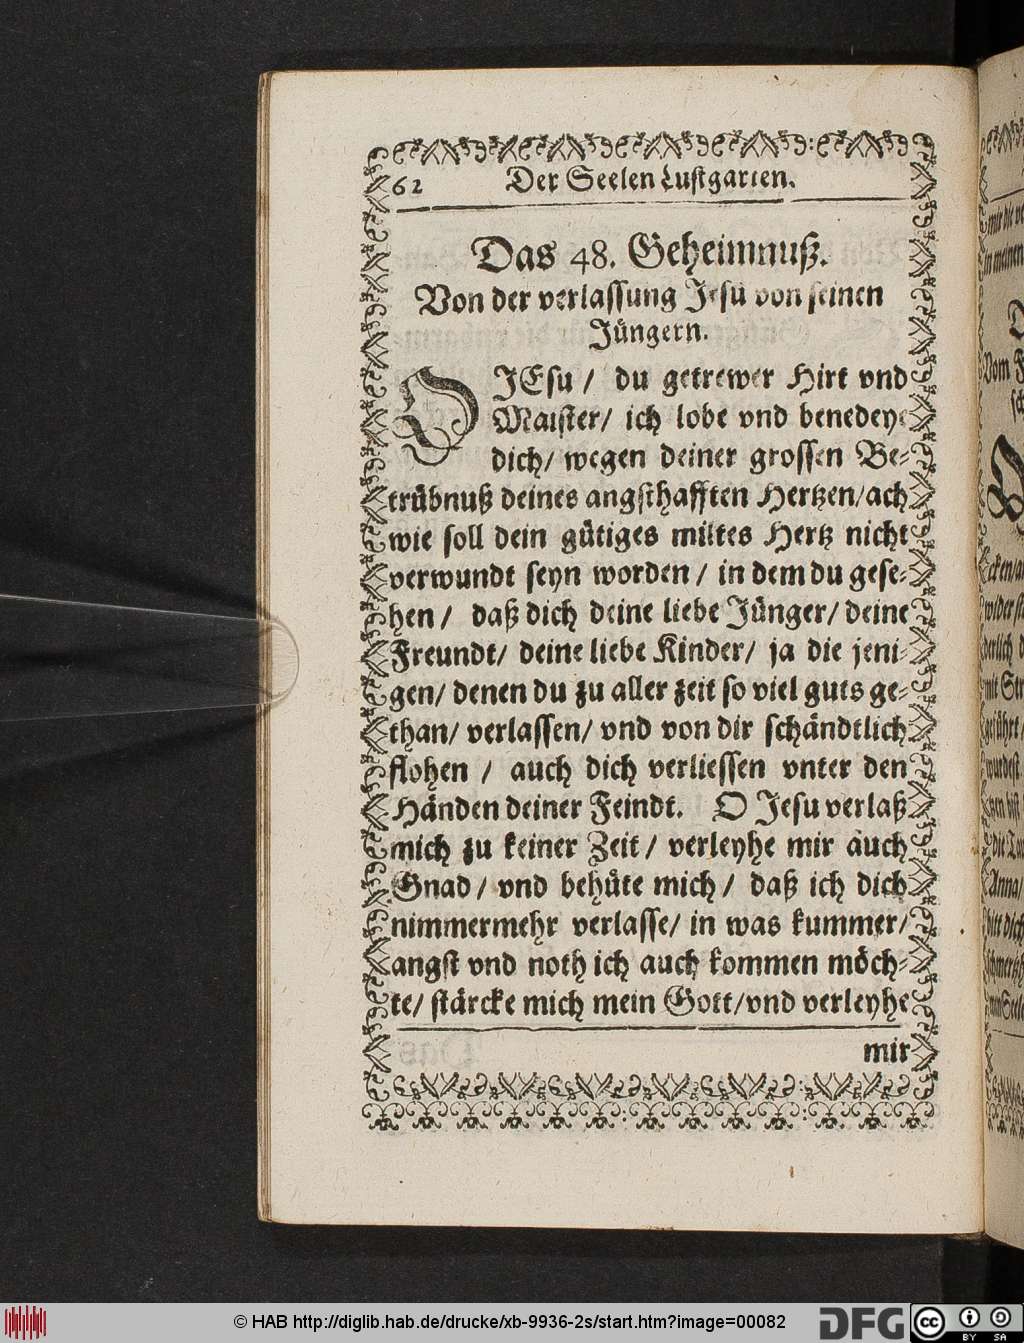 62 Der Seelen Lustgarten.
Das 48. Geheimnuß.
Von der verlassung Jesu von seinen
Jüngern.
O JEsu / du getrewer Hirt vnd
Maister/ ich lobe vnd benedeye
dich/ wegen deiner grossen Be-
trübnuß deines angsthafften Hertzen/ach
wie soll dein gütiges miltes Hertz nicht
verwundt seyn worden / in dem du gese-
hen / daß dich deine liebe Jünger/ deine
Freundt/ deine liebe Kinder/ ja die jeni-
gen/ denen du zu aller zeit so viel guts ge-
than/ verlassen/ vnd von dir schändtlich
flohen / auch dich verliessen vnter den
Händen deiner Feindt. O Jesu verlaß
mich zu keiner Zeit / verleyhe mir auch
Gnad / vnd behüte mich / daß ich dich
nimmermehr verlasse/ in was kummer/
angst vnd noth ich auch kommen möch-
te/ stärcke mich mein Gott/vnd verleyhe
mir
mit die
in meinen
Vom
cken/
wider
mit
geführt/
wurdest
die
Anna/
bitt dich
© HAB http://diglib.hab.de/drucke/xb-9936-2s/start.htm?image=00082
DFG
cc
BY SA